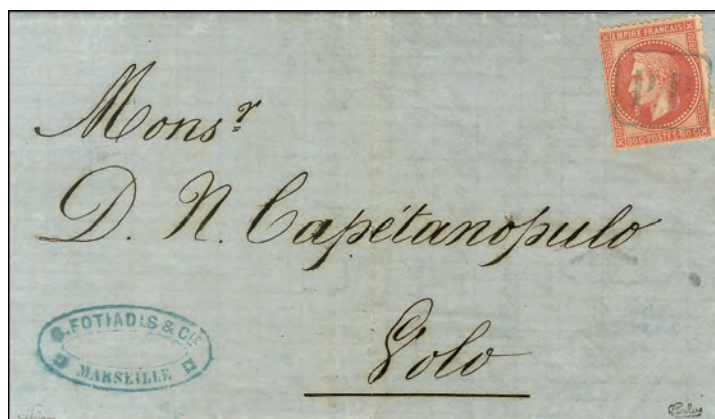 EMPIRE FRANÇAIS
80 C POSTES 80 C
P.P.
Mons.r
D. N. Capétanopulo
Volo
G. FOTIADIS & CIE
MARSEILLE